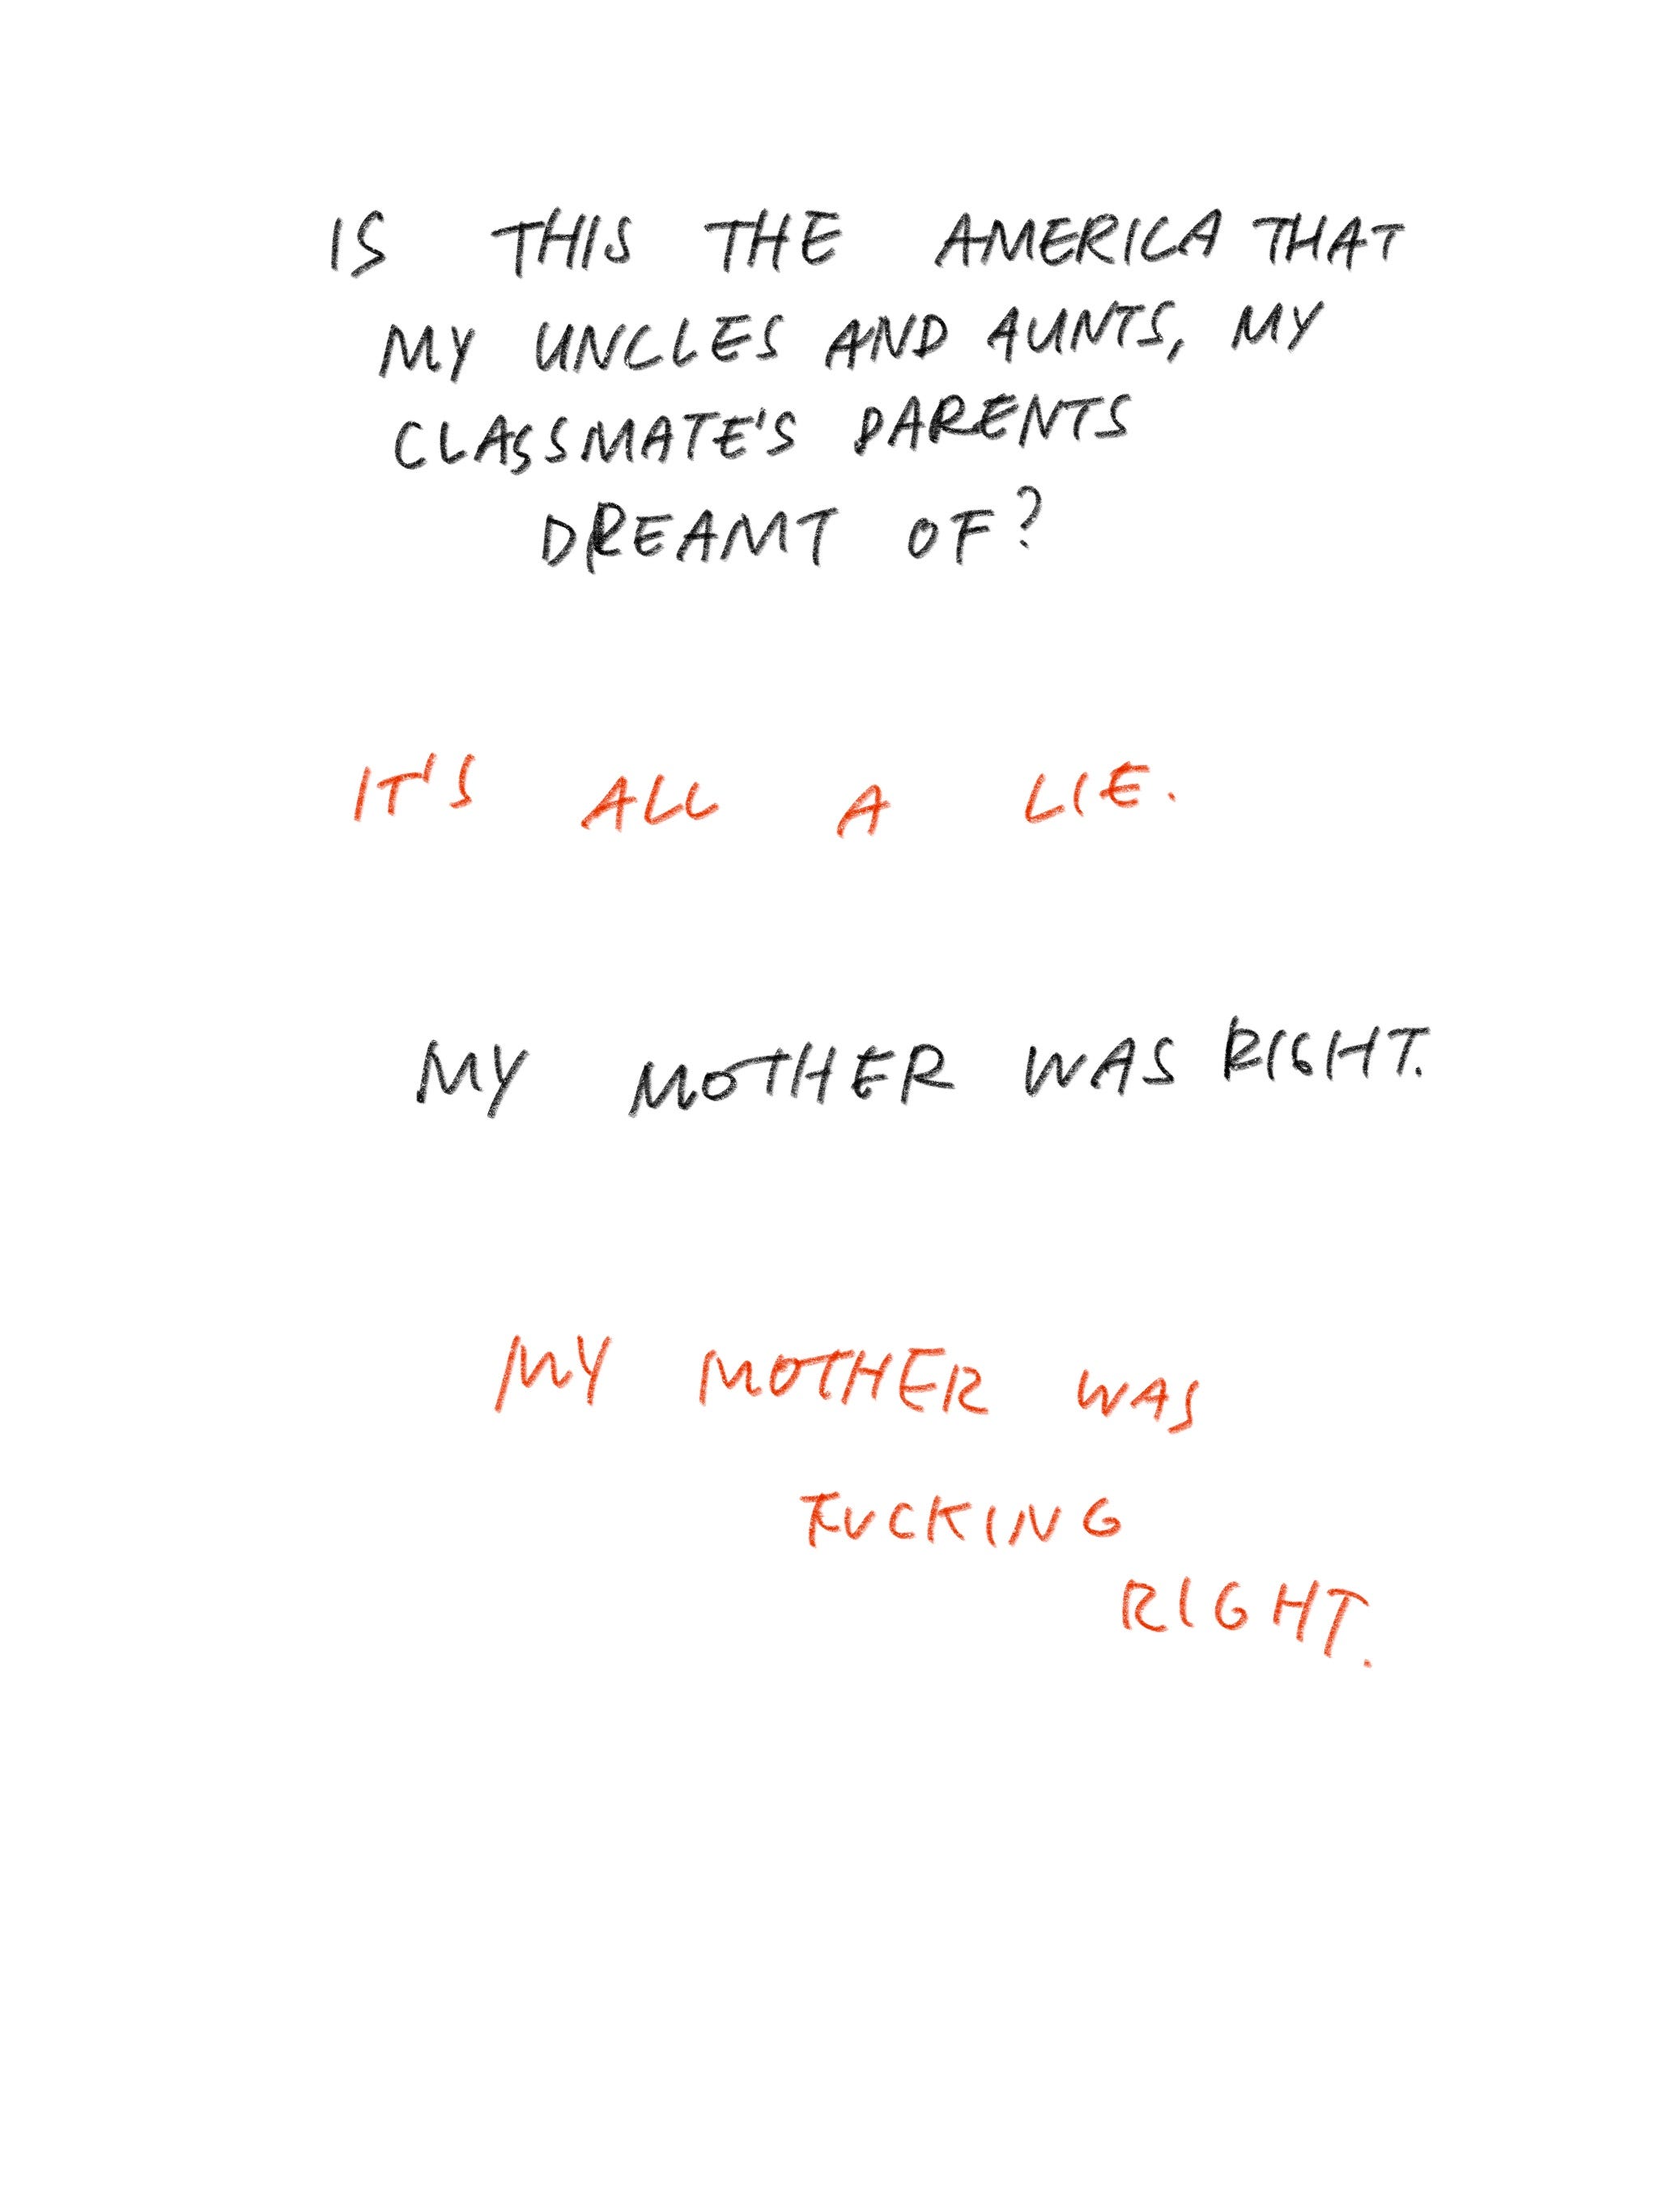 IS THIS THE AMERICA THAT
MY UNCLES AND AUNTS, MY
CLASSMATE'S PARENTS
DREAMT OF?
IT'S ALL A LIE.
MY MOTHER WAS RIGHT.
MY MOTHER WAS
FUCKING
RIGHT.